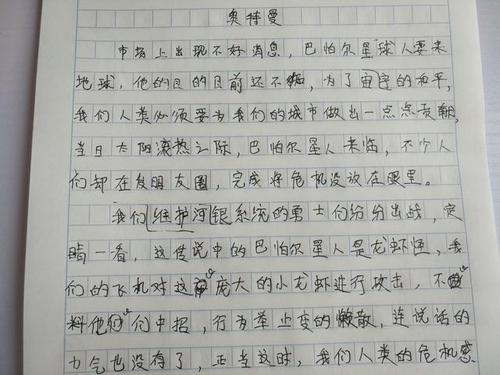 奥特曼
市场上出现不好消息，巴怕尔星球人要来
地球，他的目的目前还不知，为了宇宙的和平，
我们人类必须要为我们的城市做出一点点贡献，
当日太阳滚热之际，巴怕尔星人来临，不少人
们却在发朋友圈，完成将危机没放在眼里。
我们维护河银系统的勇士们纷纷出战，定
睛一看，这传说中的巴怕尔星人是龙虾怪，我
们的飞机对这庞大的小龙虾进行攻击，不
料他们中招，行为举止变的懒散，连说话的
力气也没存了，正当这时，我们人类的危机感